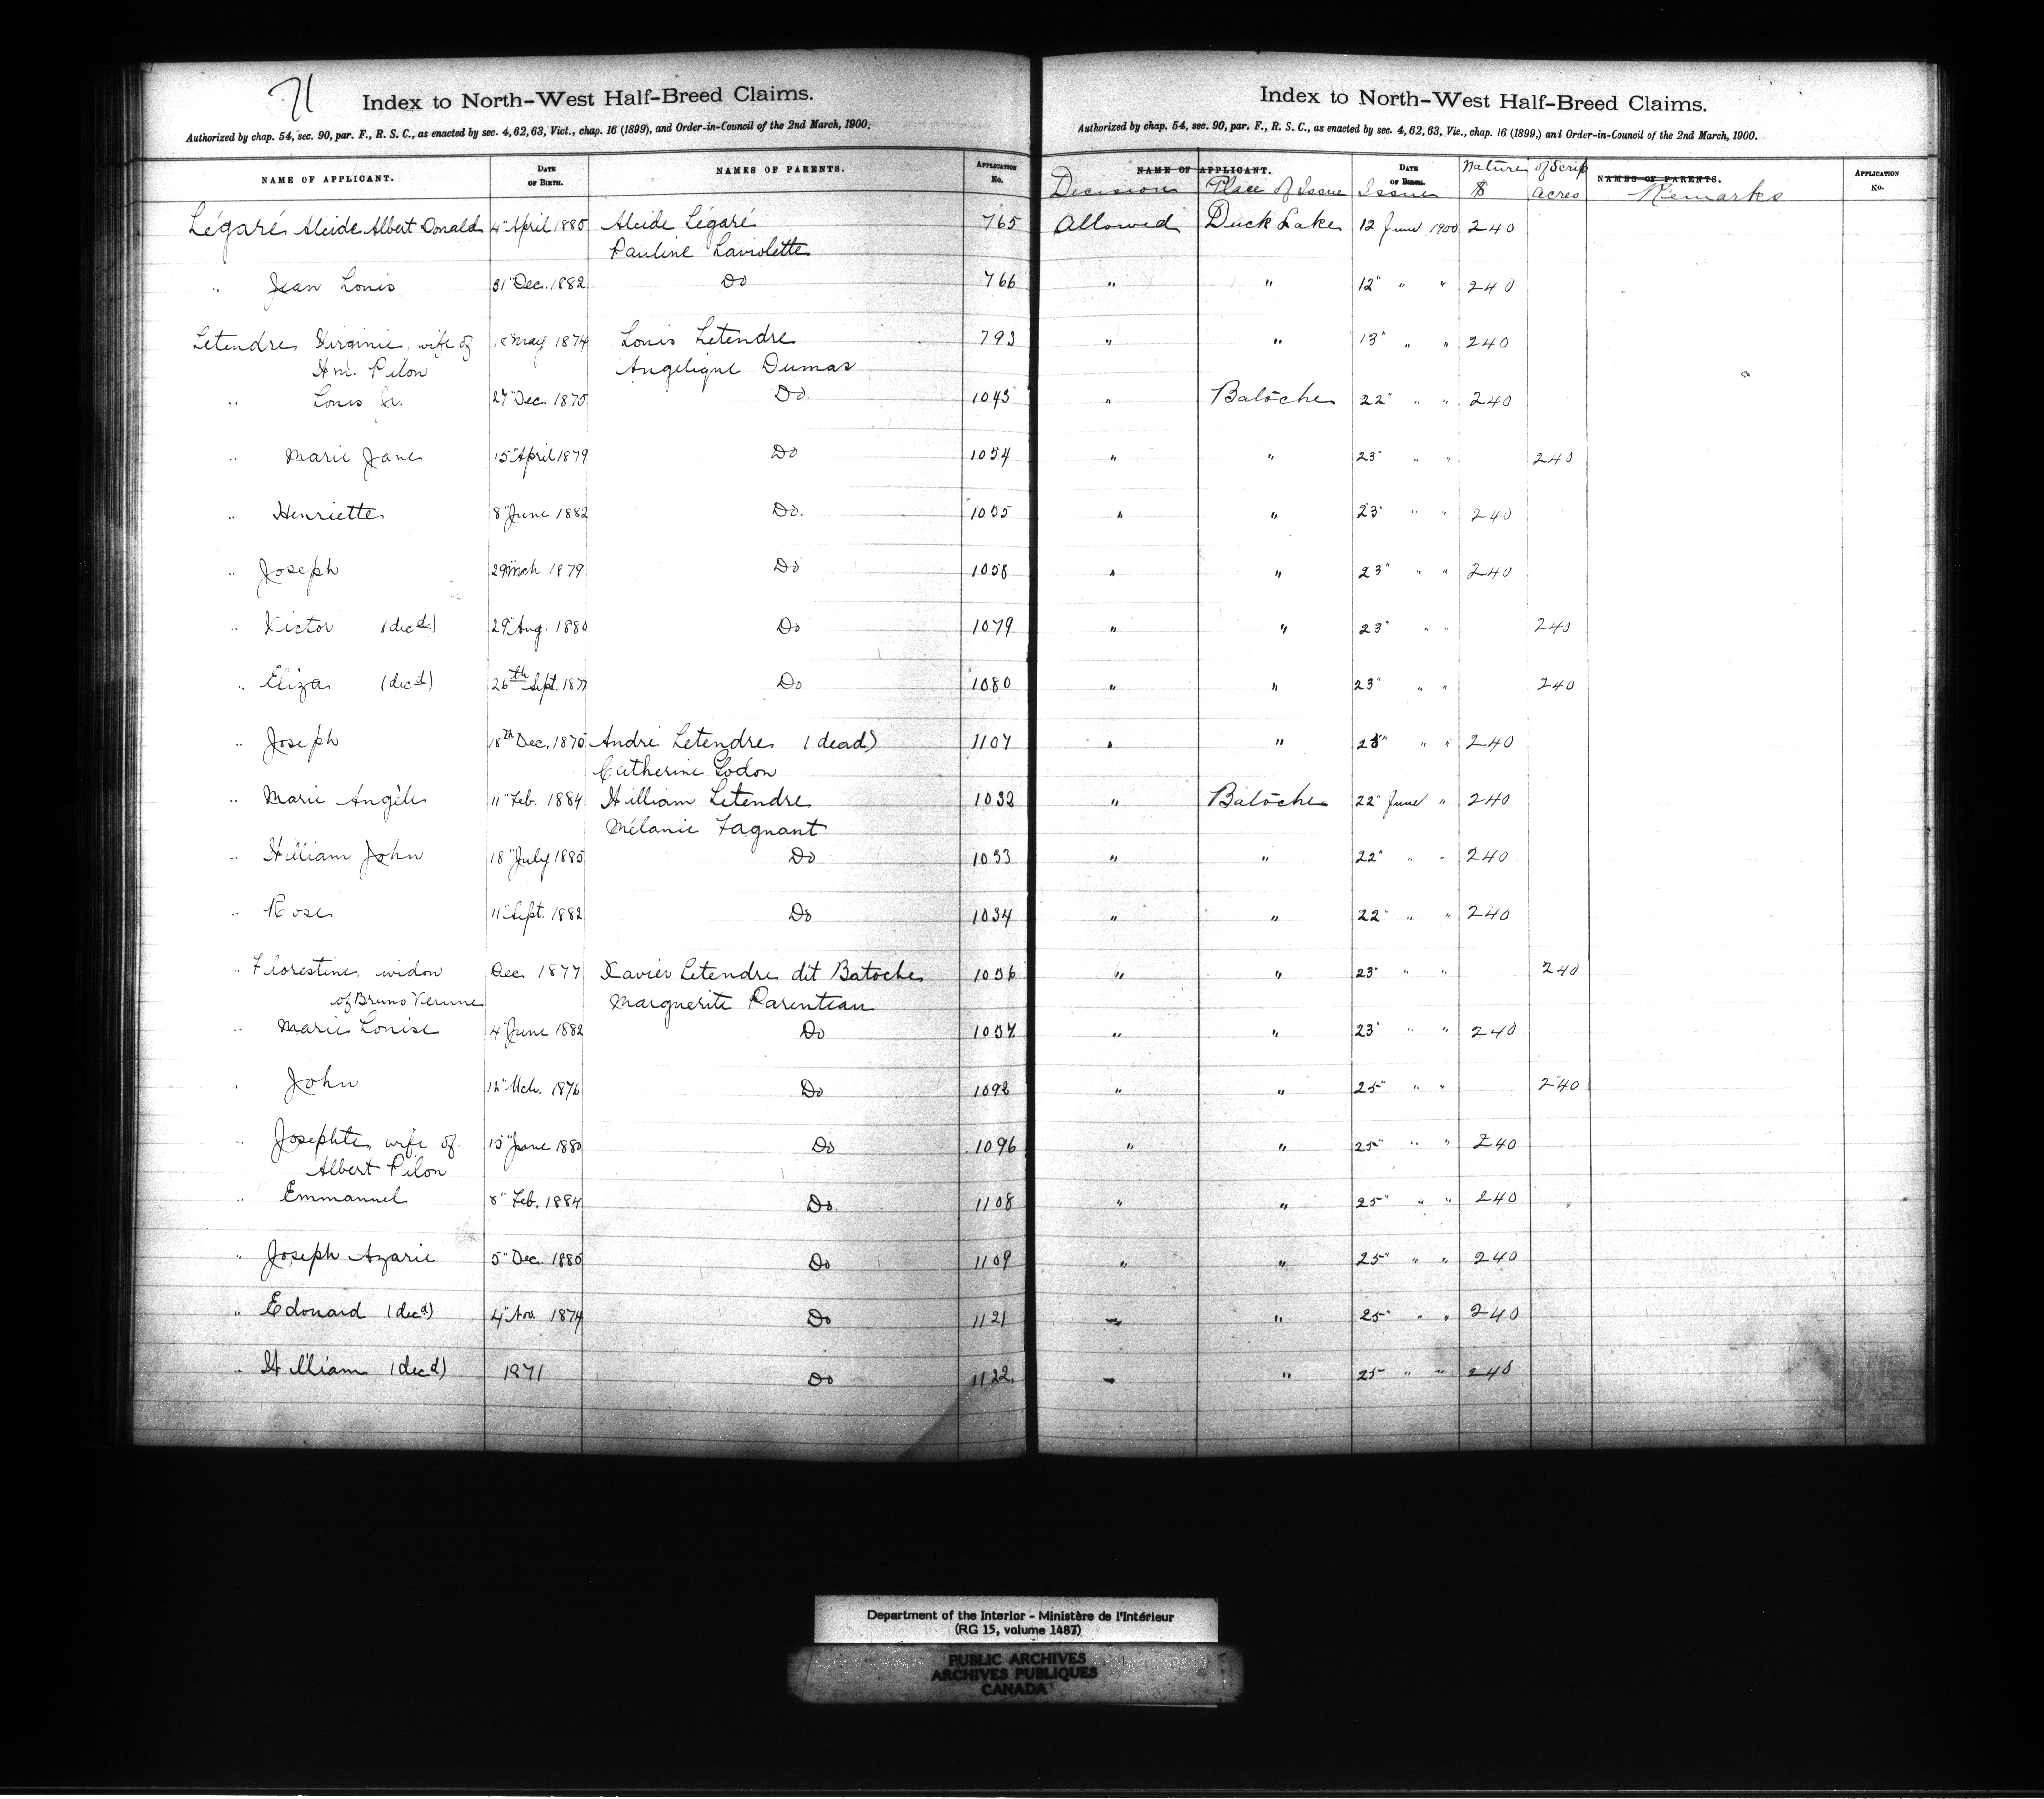 71
Index to North-West Half-Breed Claims.
Authorized by chap. 54, sec. 90, par. F., R. S. C., as enacted by sec. 4, 62, 63, Vict., chap. 16 (1899), and Order-in-Council of the 2nd March, 1900.
NAME OF APPLICANT. DATE OF BIRTH. NAMES OF PARENTS. APPLICATION No.
Légaré Alcide Albert Donald 4" April 1880 Alcide Légaré 765
Pauline Laviolette
" Jean Louis 31" Dec. 1882 Do 766
Letendre Virginie, wife of May 1874 Louis Letendre 793
Wm. Pilon Angelique Dumas
" Louis Jr. 27" Dec. 1875 Do. 1043
" Marie Jane 15" April 1879 Do 1054
" Henriette 8" June 1882 Do. 1055
" Joseph 29" Mch 1879 Do 1058
" Victor (decd) 29" Aug. 1880 Do 1079
" Eliza (decd) 26th Sept. 1877 Do 1080
" Joseph 18th Dec. 1875 André Letendre (dead) 1107
Catherine Godon
" Marie Angèle 11" Feb. 1884 William Letendre 1032
Mélanie Fagnant
" William John 18" July 1885 Do 1033
" Rose 11" Sept. 1882 Do 1034
" Florestine, widow Dec 1877 Xavier Letendre dit Batoche 1056
of Bruno Verme Marguerite Parenteau
" Marie Louise 4" June 1882 Do 1057
" John 12" Mch. 1876 Do 1092
" Josephte, wife of 15" June 1880 Do 1096
Albert Pilon
" Emmanuel 8" Feb. 1884 Do. 1108
" Joseph Azarie 5" Dec. 1885 Do 1109
" Edouard (decd) 4" Nov. 1874 Do 1121
" William (decd) 1871 Do 1122.
Index to North-West Half-Breed Claims.
Authorized by chap. 54, sec. 90, par. F., R. S. C., as enacted by sec. 4, 62, 63, Vic., chap. 16 (1899,) and Order-in-Council of the 2nd March, 1900.
NAME OF APPLICANT. DATE OF BIRTH. Nature of Scrip NAMES OF PARENTS. APPLICATION No.
Decision Place of Issue Issue $ acres Remarks
Allowed Duck Lake 12 June 1900 240
" " 12" " " 240
" " 13" " " 240
" Batoche 22" " " 240
" " 23" " " 240
" " 23" " " 240
" " 23" " " 240
" " 23" " " 240
" " 23" " " 240
" " " " 240
" Batoche 22" June " 240
" " 22" " " 240
" " 22" " " 240
" " 23" " " 240
" " 23" " " 240
" " 25" " " 240
" " 25" " " 240
" " 25" " " 240
" " 25" " " 240
" " 25" " " 240
" " 25 " " 240
Department of the Interior - Ministère de l'Intérieur
(RG 15, volume 1487)
PUBLIC ARCHIVES
ARCHIVES PUBLIQUES
CANADA